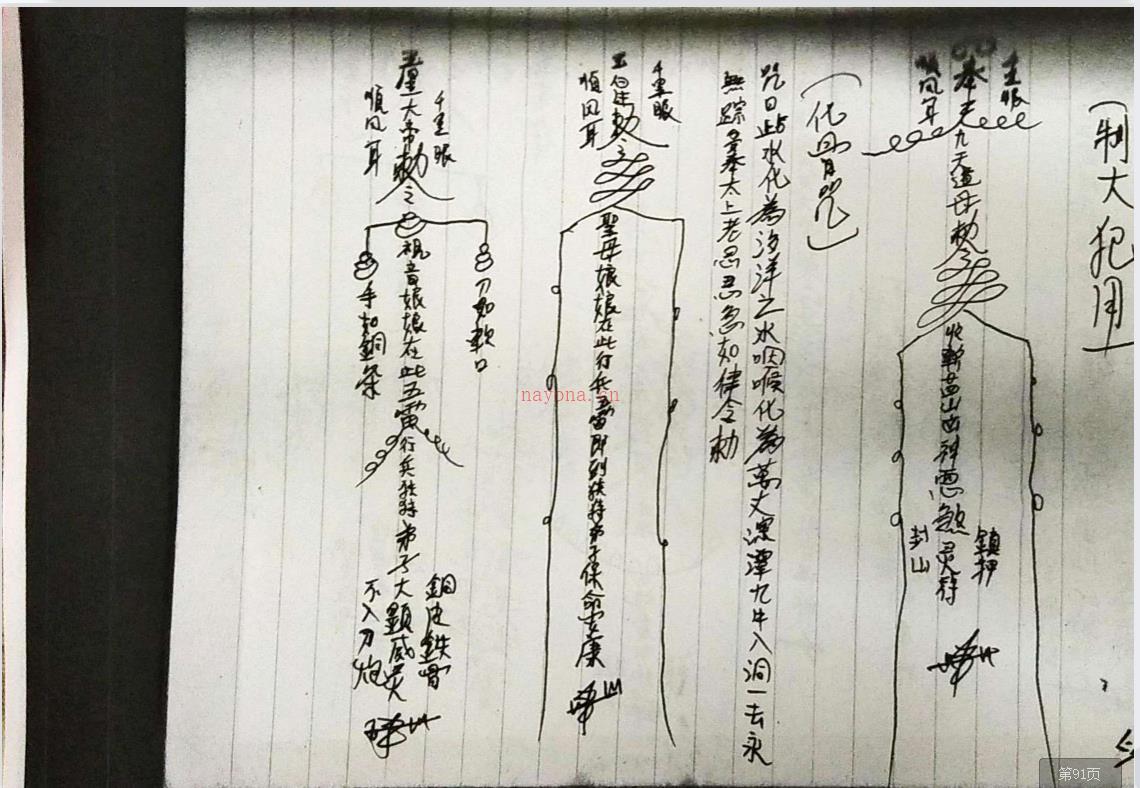 (制大犯用)
千里眼
奉天九天道母敕令
順风耳
收斩茔山凶神惡煞灵符
鎮押
封山
(化骨咒)
咒曰此水化為汐洋之水咽喉化為萬丈深潭九牛入洞一去永
無踪 奉太上老君急急如律令勅
千里眼
玉皇勅令
順风耳
聖母娘娘在此行兵五雷即到扶持弟子保命安康
千里眼
大帝勅令
順风耳
刀如軟口
観音娘娘在此五雷行兵扶持弟子大顯威灵
手如銅條
銅皮鉄骨
不入刀炮
nayona.cn
第91页